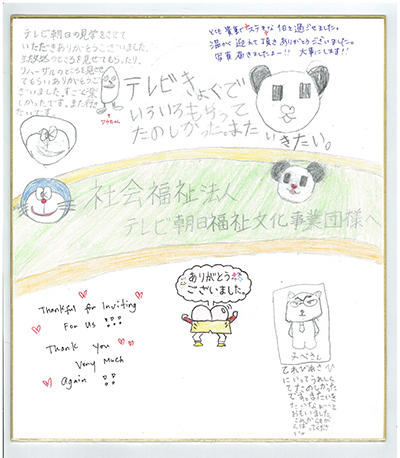 テレビ朝日の見学をさせて
いただきありがとうございました。
のところを見せてもらったり、
リハーサルのところを見せ
てもらいありがとうござ
いました。すごく楽
しかったです。また行き
たいです。
とても貴重でステキな1日を過ごせました。
温かく迎えて頂きありがとうございました。
写真届きましたよー!! 大事にします!!
テレビきょくで
いろいろもらって
たのしかった。また
いきたい。
社会福祉法人
テレビ朝日福祉文化事業団様へ
ありがとう
ございました。
Thankful for Inviting
For Us !!!
Thank you
Very Much
Again !!
てれびあさひ
にいってうれしく
てたのしかった
です。またいきま
おもいました。
これからもが
んばってくださ
い。